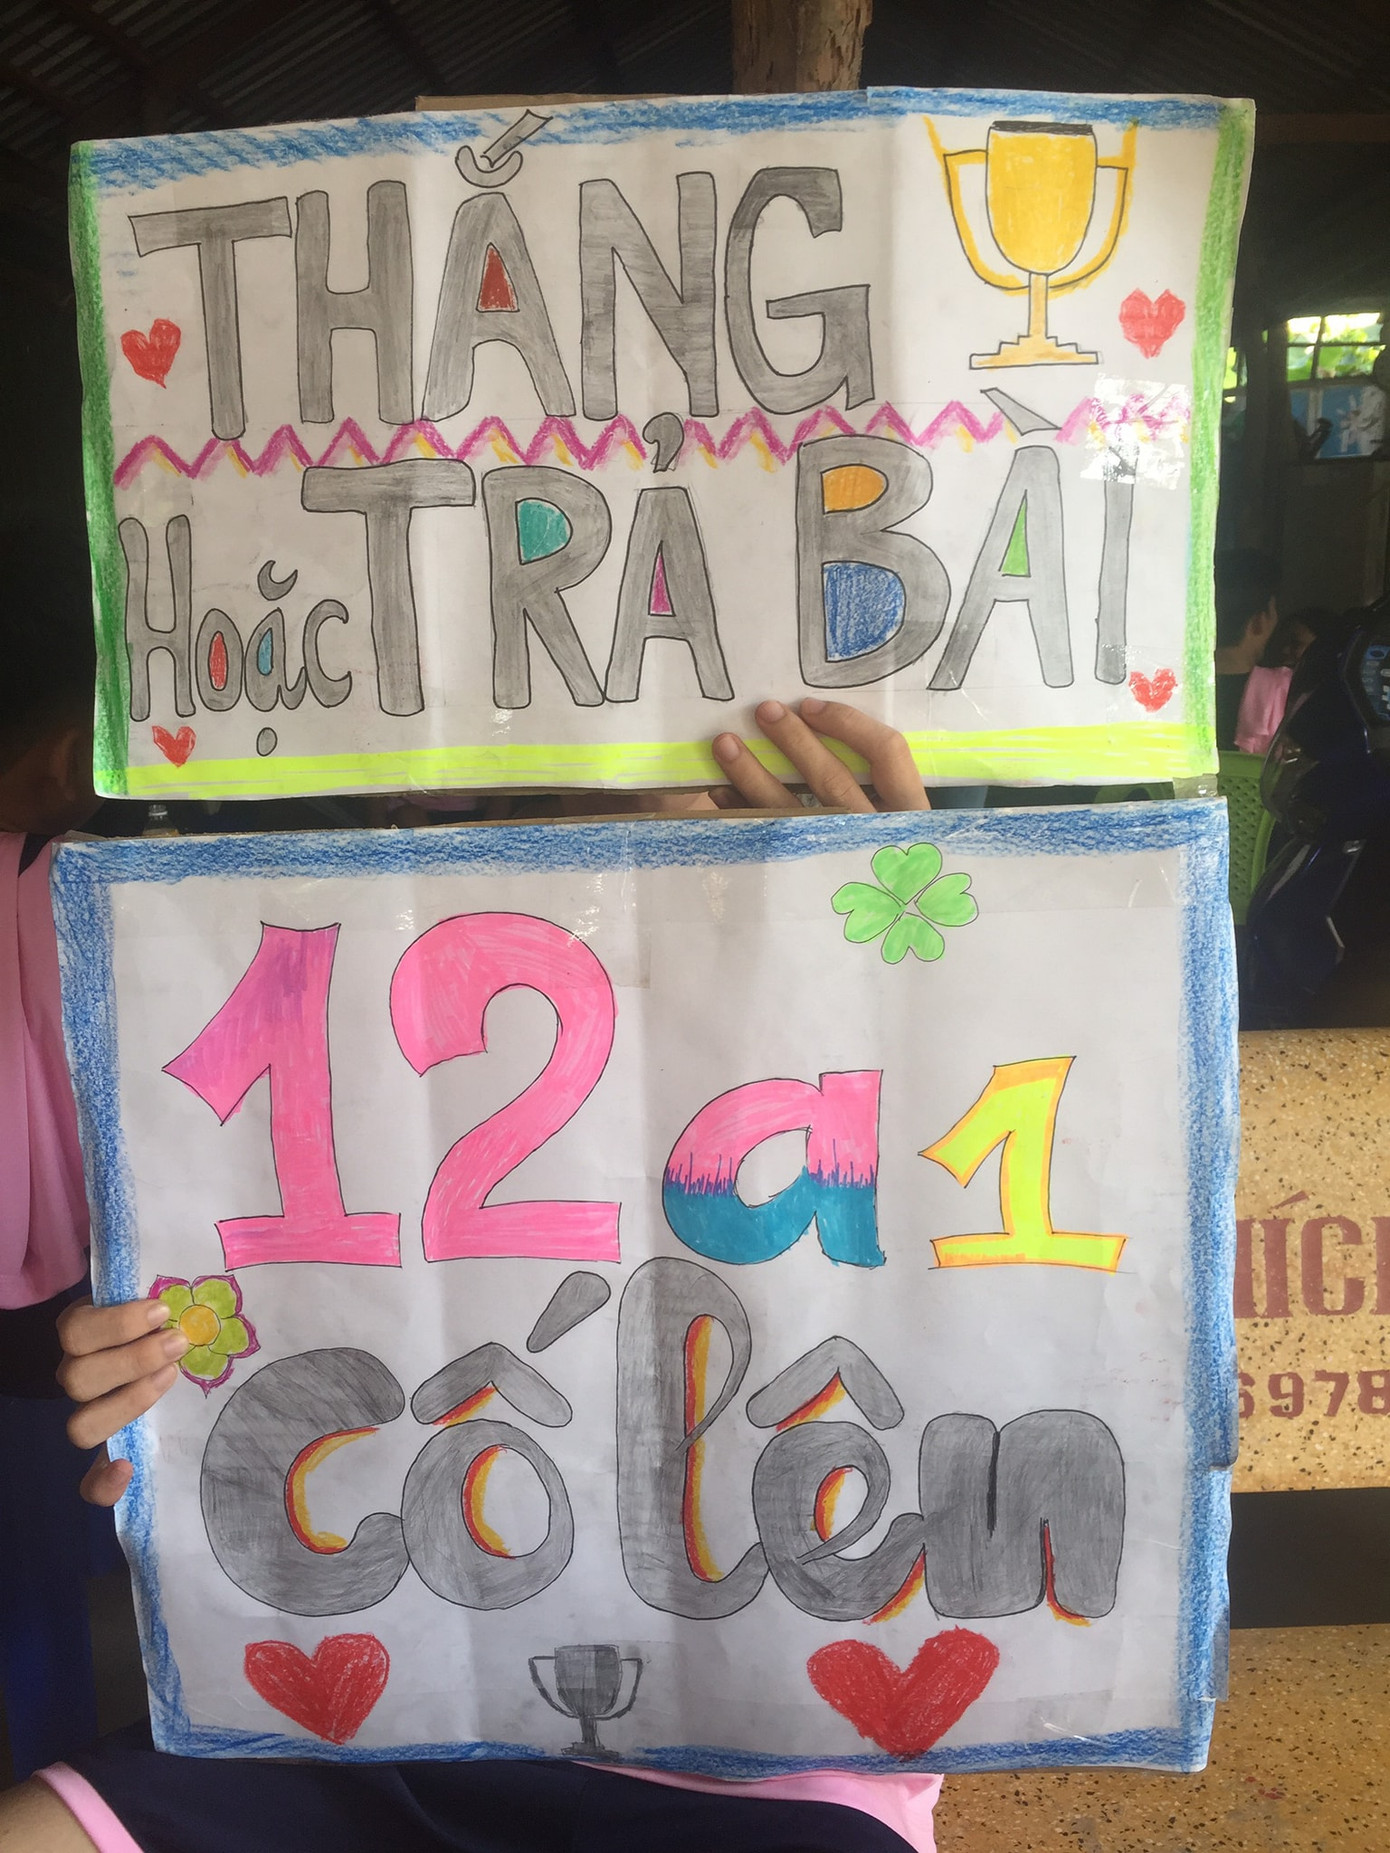 THẮNG
Hoặc TRẢ BÀI
12a1
cố lên
6978